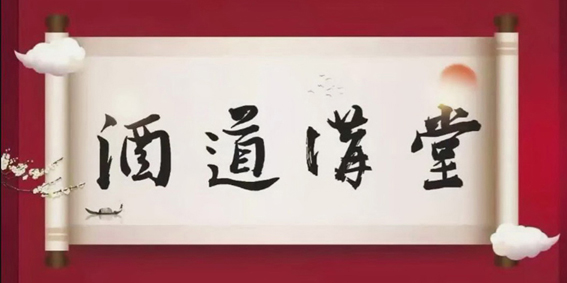 酒道講堂